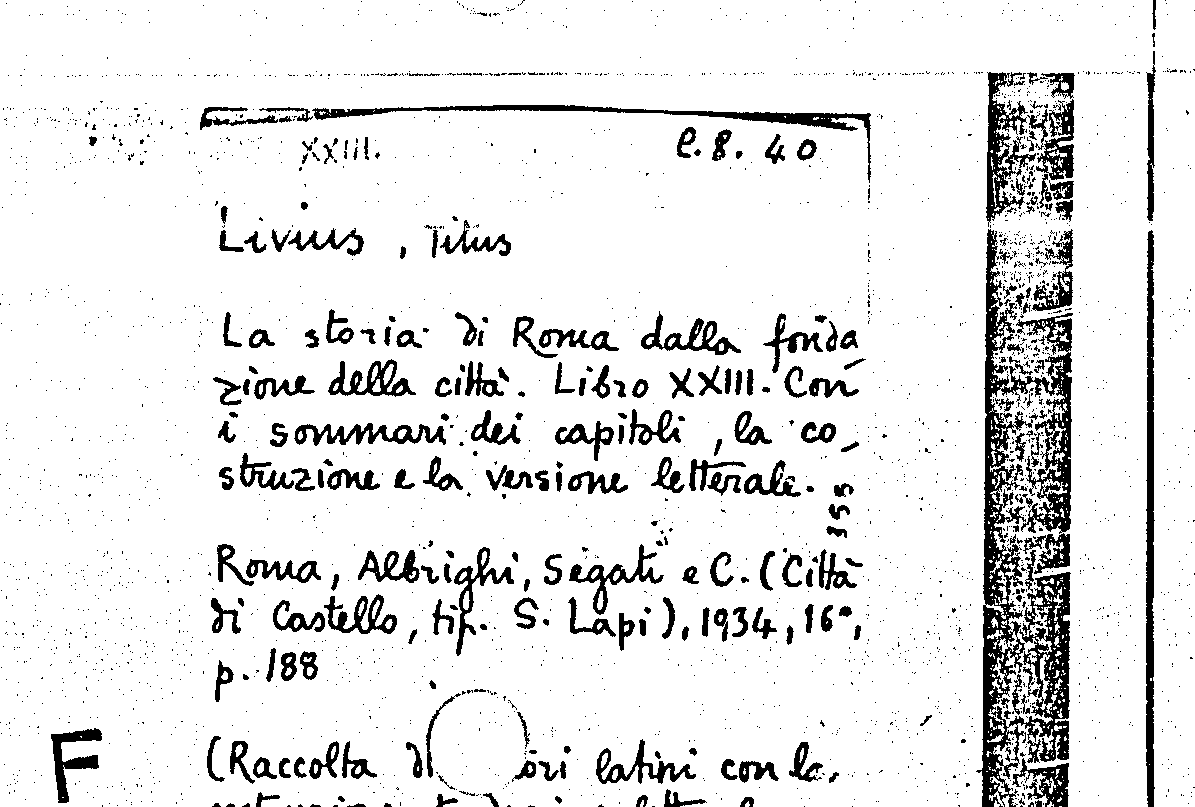 XXIII.
C. 8. 40
Livius, Titus
La storia di Roma dalla fonda
zione della città. Libro XXIII. Con
i sommari dei capitoli, la co_
struzione e la versione letterale.
355
Roma, Albrighi, Segati e C. (Città
di Castello, tip. S. Lapi), 1934, 16°,
p. 188
F
(Raccolta di ori latini con la